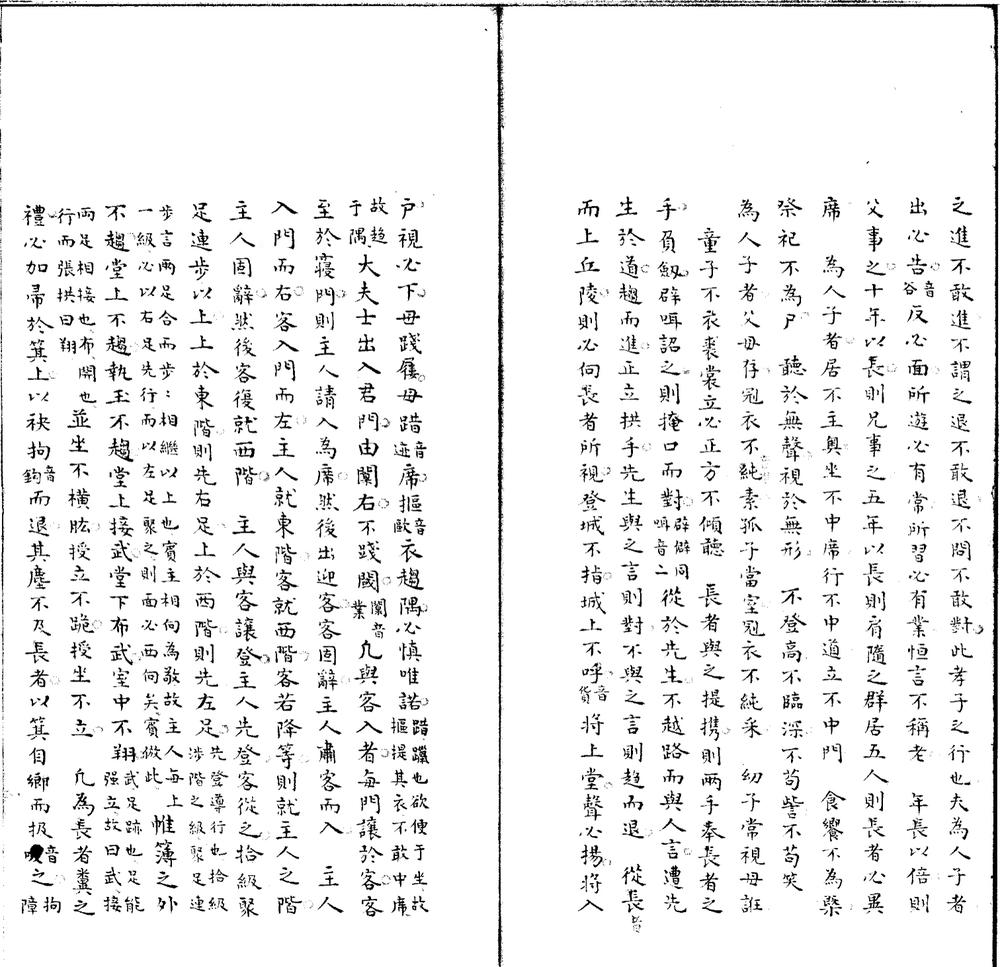 之進不敢進不謂之退不敢退不問不敢對此孝子之行也夫為人子者
出必告音谷反必面所遊必有常所習必有業恒言不稱老　年長以倍則
父事之十年以長則兄事之五年以長則肩隨之群居五人則長者必異
席　為人子者居不主奥坐不中席行不中道立不中門　食饗不為槩
祭祀不為尸　聽於無聲視於無形　不登高不臨深不茍訾不茍笑
為人子者父母存冠衣不純素孤子當室冠衣不純采　幼子常視毋誑
童子不衣裘裳立必正方不傾聽　長者與之提携則兩手奉長者之
手負劔辟咡詔之則掩口而對辟僻同咡音二從於先生不越路而與人言遭先
生於道趨而進正立拱手先生與之言則對不與之言則趨而退　從長者
而上丘陵則必向長者所視登城不指城上不呼音貨將上堂聲必揚將入
户視必下毋踐屨毋踖音迹席摳音歐衣趨隅必慎唯諾踖躐也欲便于坐故摳提其衣不敢中席
故趨于隅大夫士出入君門由闑右不踐閾闑音業凢與客入者每門讓於客客
至於寢門則主人請入為席然後出迎客客固辭主人肅客而入　主人
入門而右客入門而左主人就東階客就西階客若降等則就主人之階
主人固辭然後客復就西階　主人與客讓登主人先登客從之拾級聚
足連步以上上於東階則先右足上於西階則先左足先登導行也拾級涉階之級聚足連
步言兩足合而步步相繼以上也賓主相向為敬故主人每上一級必以右足先行而以左足聚之則面必西向矣賓倣此帷簿之外
不趨堂上不趨執玉不趨堂上接武堂下布武室中不翔武足跡也足能强立故曰武接
兩足相接也布開也行而張拱曰翔並坐不橫肱授立不跪授坐不立　凢為長者糞之
禮必加帚於箕上以袂拘音鉤而退其塵不及長者以箕自鄉而扱音吸之拘障